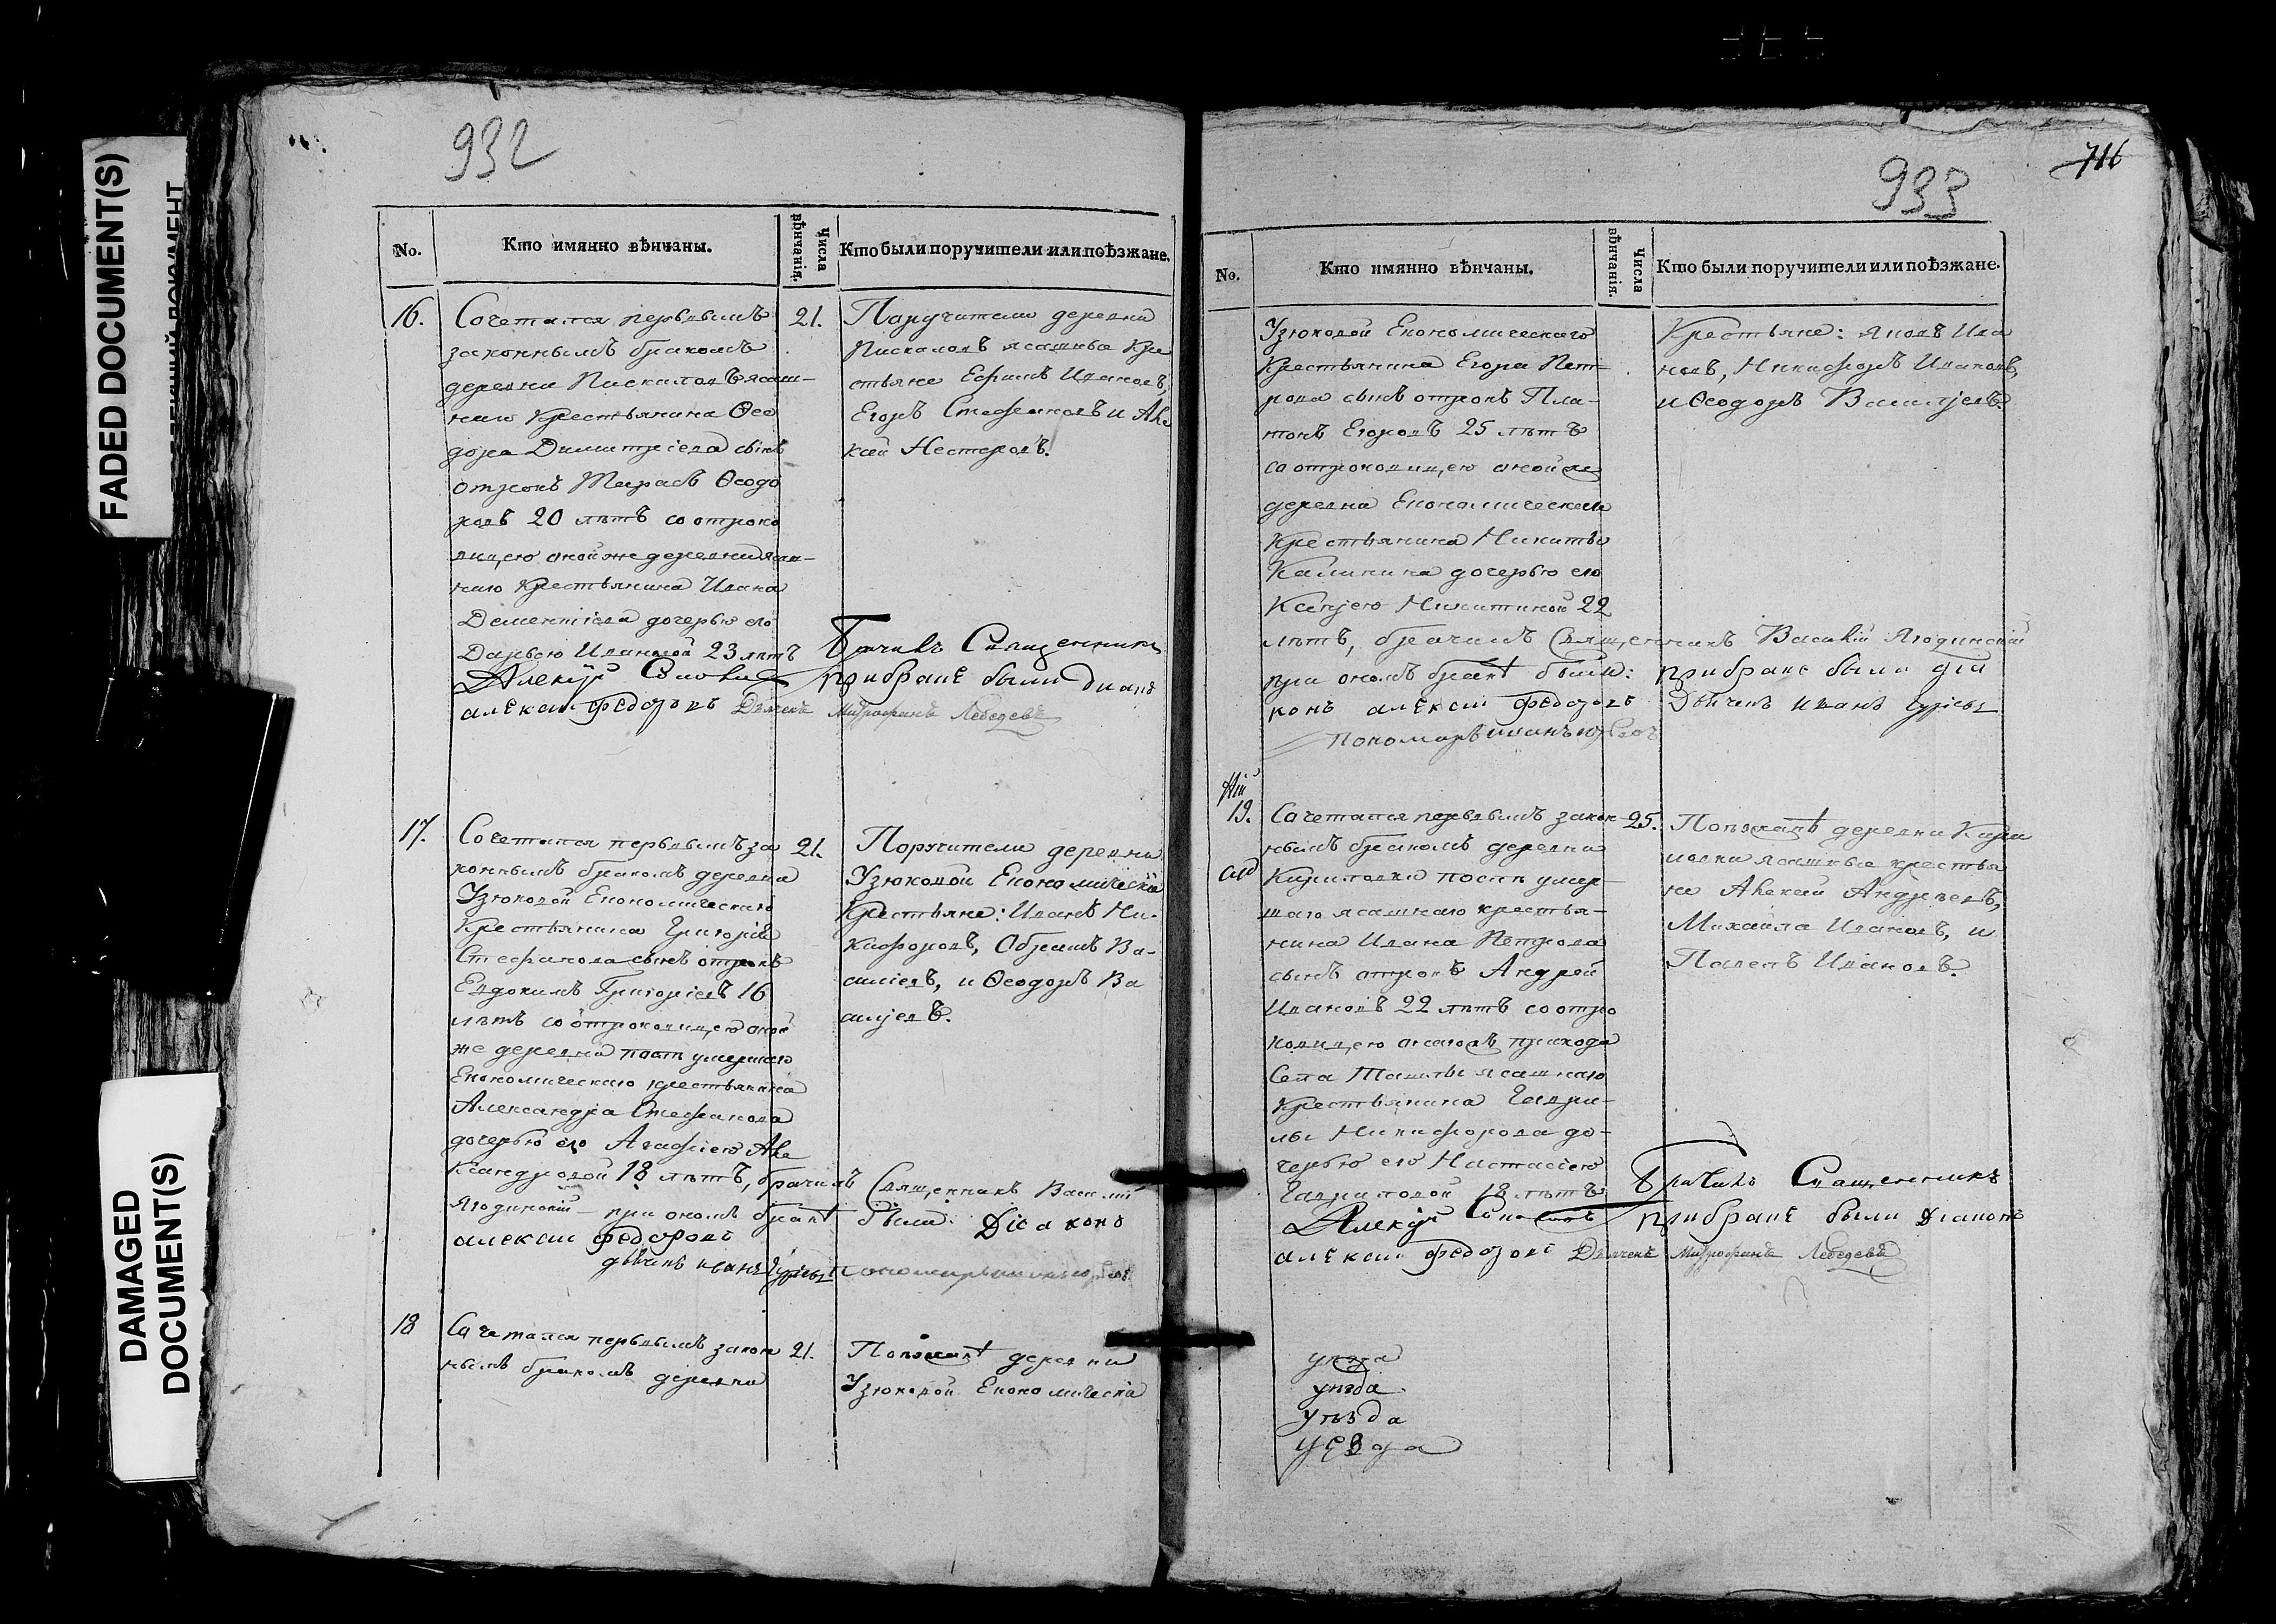 FADED DOCUMENT(S)
DAMAGED
DOCUMENT(S)
932
No.
Кто имянно вѣнчаны.
Числа
вѣнчанія.
Кто были поручители или поѣзжане.
16.
Сочетался первымъ
законнымъ бракомъ
деревни Пискаловъ ясаш-
наго крестьянина Ѳео
дора Димитріева сынъ
отрокъ Тарасъ Ѳеодо
ровъ 20 лѣтъ со отроко
вицею оной же деревни ясаш-
наго крестьянина Ивана
Дементіева дочерью его
Дарьею Ивановой 23 лѣтъ
21.
Поручители деревни
Пискаловъ ясашныя кре
стьяне Ефимъ Ивановъ,
Егоръ Стефановъ и Але
ксѣй Нестеровъ.
Брачилъ Священникъ
Алексѣй
при бракѣ были Диаконъ
алексѣи Федоровъ Дьячекъ Митрофанъ Лебедевъ
17.
Сочетался первымъ за
коннымъ бракомъ деревни
Узюковой Економическаго
крестьянина Григорія
Стефанова сынъ отрокъ
Евдокимъ Григоріевъ 16
лѣтъ со отроковицею оной
же деревни послѣ умершаго
Економическаго крестьянина
Александра Стефанова
дочерью его Агафіею Але
ксандровой 18 лѣтъ, брачилъ Священникъ Василій
Ягодинскій при ономъ бракѣ были: Діаконъ
алексѣи Федоровъ
дьячекъ иванъ пономарь
21.
Поручители деревни
Узюковой Економическія
крестьяне: Иванъ Ни-
кифоровъ, Абрамъ Ва-
силіевъ, и Ѳеодоръ Ва
силіевъ.
18
Сочетался первымъ закон
нымъ бракомъ деревни
21.
Поѣзжанѣ деревни
Узюковой Економическія
716
933
No.
Кто имянно вѣнчаны.
Числа
вѣнчанія.
Кто были поручители или поѣзжане.
Узюковой Економическаго
крестьянина Егора Пет-
рова сынъ отрокъ Пла-
тонъ Егоровъ 25 лѣтъ
со отроковицею оной же
деревни Економическаго
крестьянина Никиты
Калинина дочерью его
Ксеніею Никитиной 22
лѣтъ, брачилъ Священникъ Василій Ягодинскій
при ономъ бракѣ были: при бракѣ были діа
конъ алексѣи Федоровъ Дьячекъ иванъ
пономарь
Крестьяне: Яковъ Ива
новъ, Никифоръ Ивановъ,
и Ѳеодоръ Василіевъ.
19.
Сочетался первымъ закон
нымъ бракомъ деревни
Кириловки послѣ умер-
шаго ясашнаго крестья-
нина Ивана Петрова
сынъ отрокъ Андрей
Ивановъ 22 лѣтъ со отро
ковицею онагожъ прихода
Села Ташлы ясашнаго
крестьянина Гаври-
лы Никифорова до-
черью его Настасіею
Гавриловой 18 лѣтъ
25.
Поѣзжанѣ деревни Кири
ловки ясашныя крестья
не Алексѣй Андреевъ,
Михайла Ивановъ, и
Павелъ Ивановъ.
Брачилъ Священникъ
Алексѣй
при бракѣ были Діаконъ
алексѣи Федоровъ Дьячекъ Митрофанъ Лебедевъ
уѣзда
уѣзда
уѣзда
уѣзда